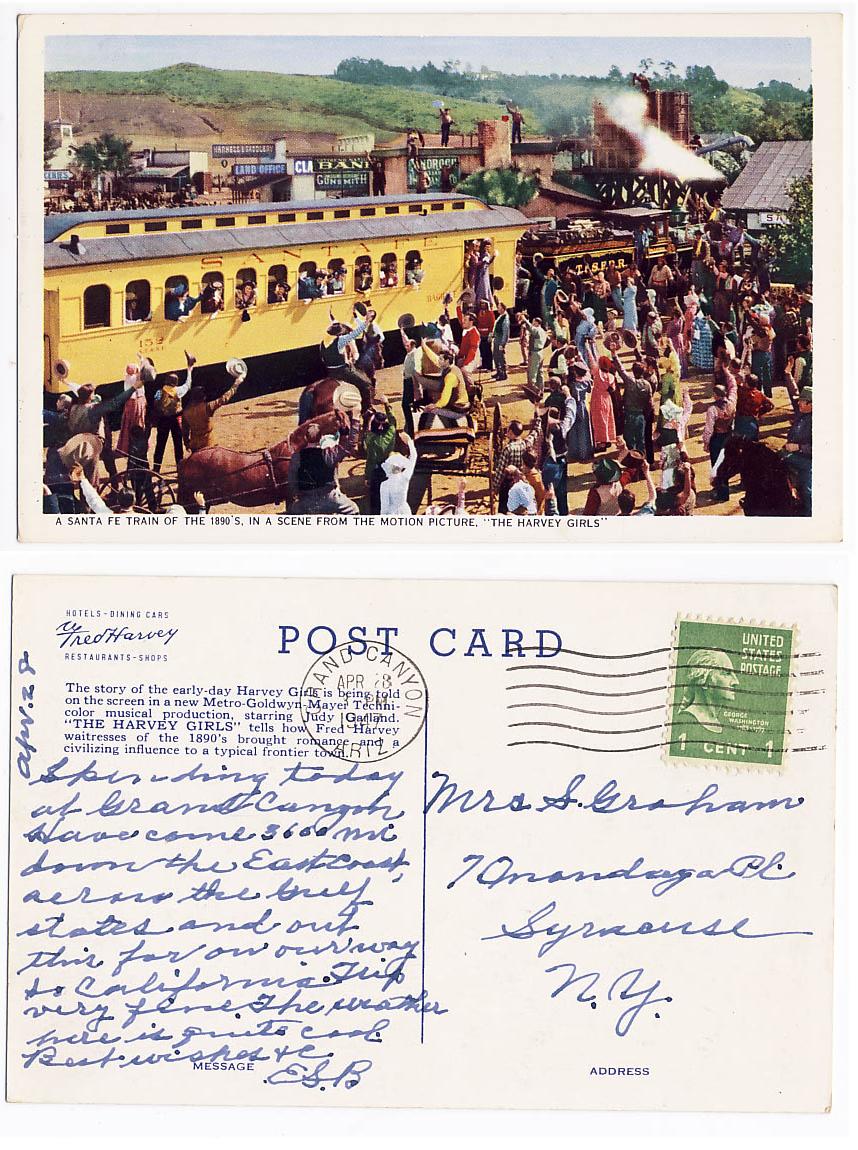 HARNESS & SADDLERY
LAND OFFICE
CLA
BANK
GUNSMITH
SANTA FE
152
T. & S. F. R.R.
SA
A SANTA FE TRAIN OF THE 1890'S, IN A SCENE FROM THE MOTION PICTURE, "THE HARVEY GIRLS"
HOTELS-DINING CARS
Fred Harvey
RESTAURANTS-SHOPS
POST CARD
GRAND CANYON
APR 28
PM
ARIZ.
UNITED
STATES
POSTAGE
GEORGE
WASHINGTON
1 CENT 1
The story of the early-day Harvey Girls is being told
on the screen in a new Metro-Goldwyn-Mayer Techni-
color musical production, starring Judy Garland.
"THE HARVEY GIRLS" tells how Fred Harvey
waitresses of the 1890's brought romance and a
civilizing influence to a typical frontier town.
Apr. 28
Spending today
at Grand Canyon
Have come 3600 mi
down the East coast,
across the Gulf
states and out
this far on our way
to California. Trip
very fine. The weather
here is quite cool.
Best wishes &c.
E.S.B
MESSAGE
Mrs S. Graham
7 Onondaga Pl.
Syracuse
N.Y.
ADDRESS